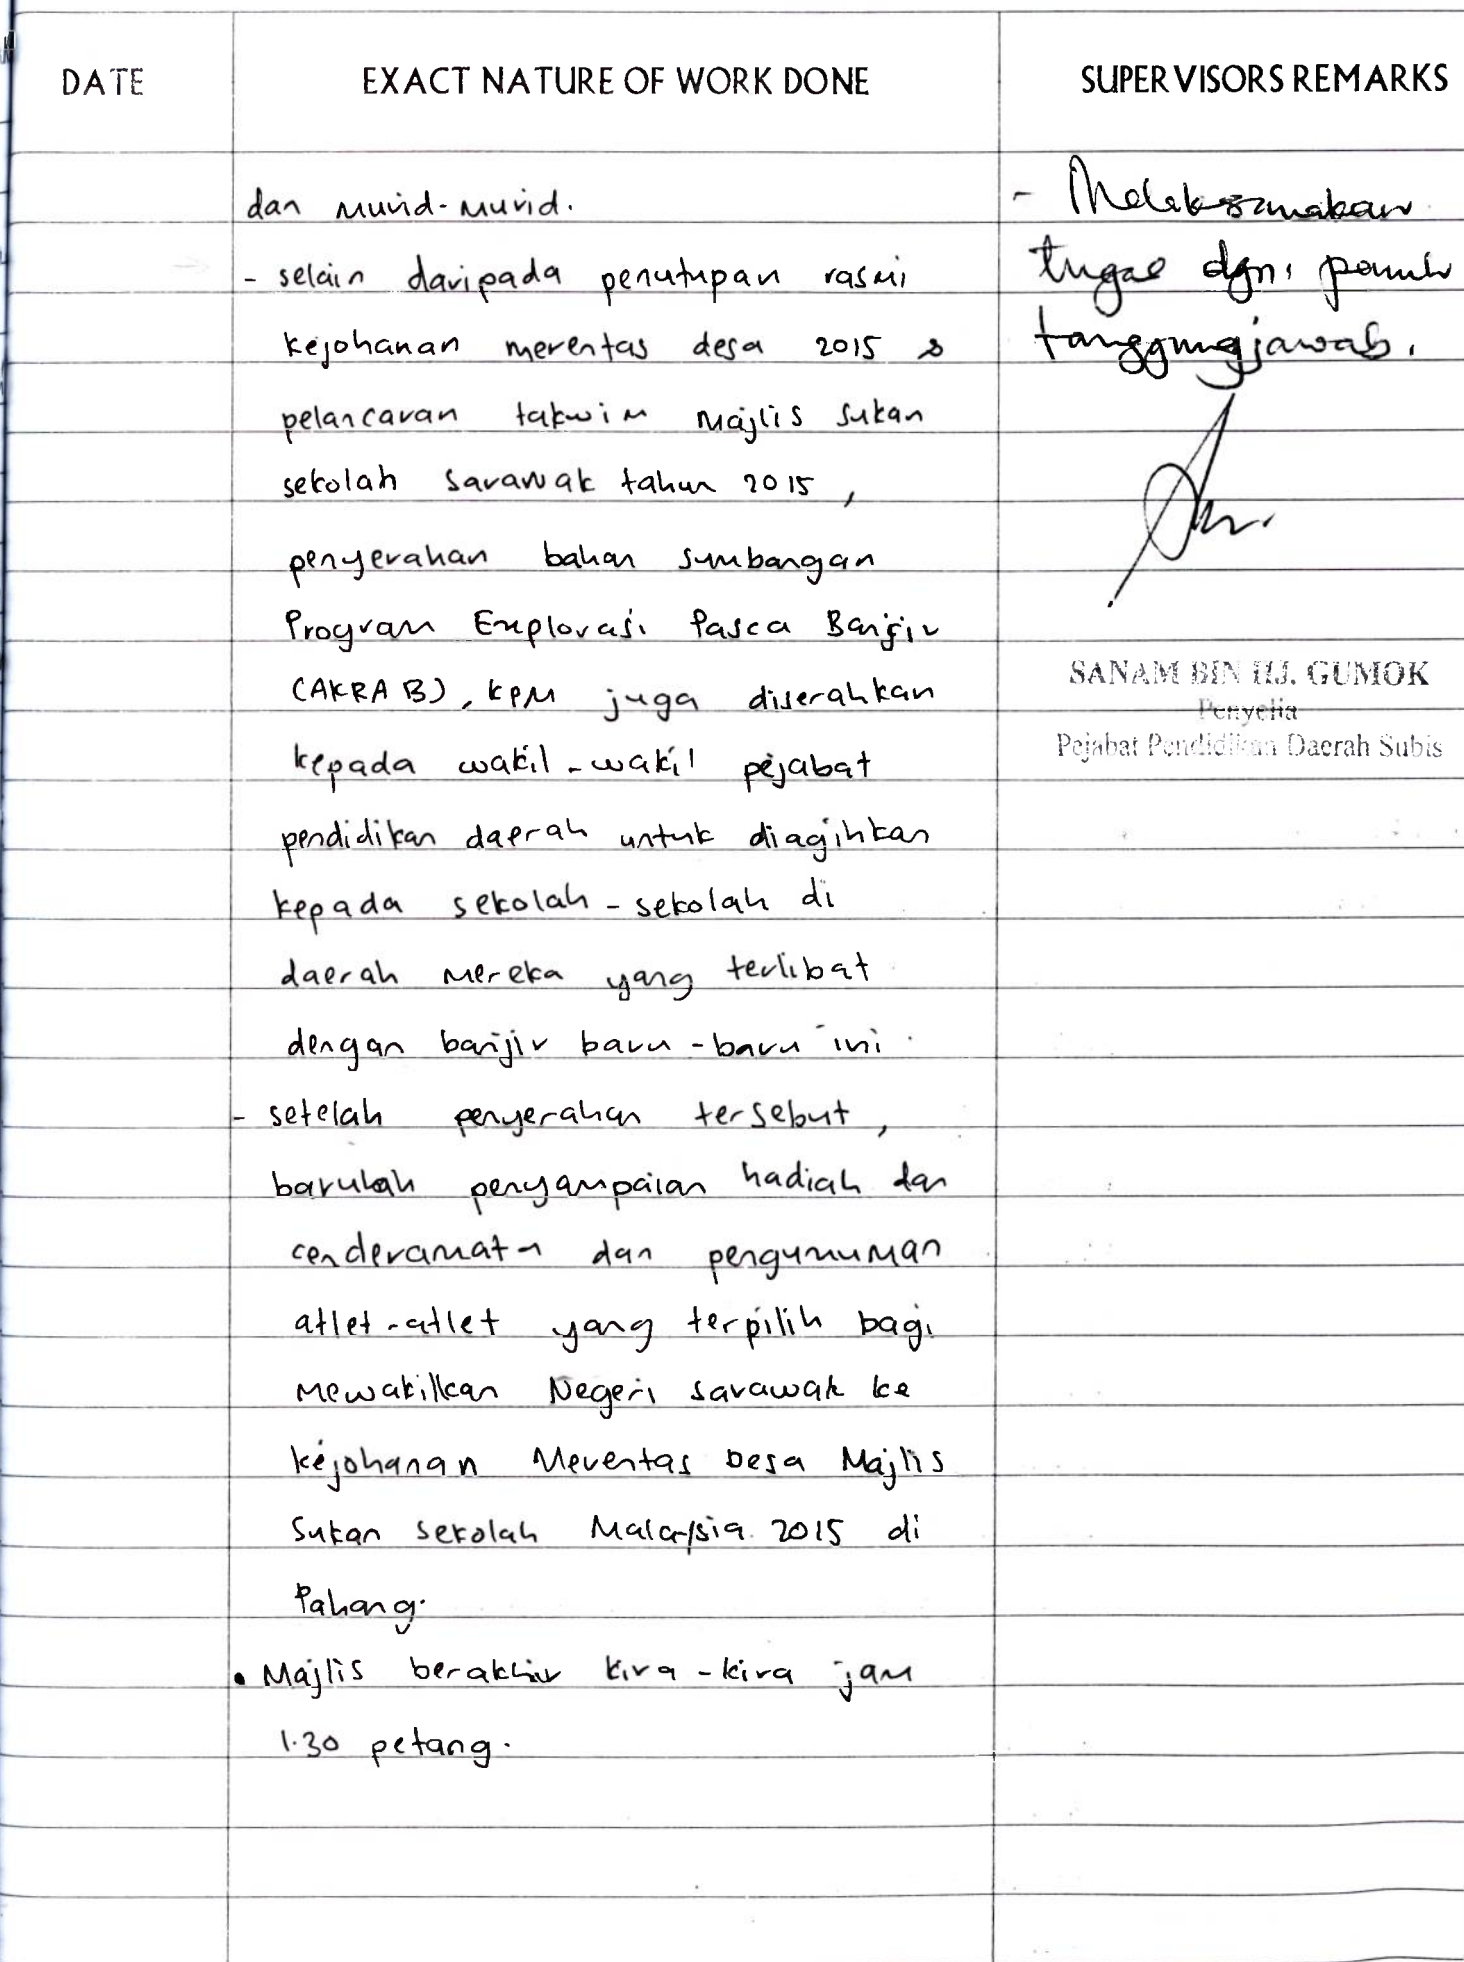 DATE
EXACT NATURE OF WORK DONE
SUPERVISORS REMARKS
dan murid-murid.
- selain daripada penutupan rasmi
kejohanan merentas desa 2015 &
pelancaran takwim Majlis Sukan
sekolah Sarawak tahun 2015,
penyerahan bahan sumbangan
Program Explorasi Pasca Banjir
(AKRAB), KPM juga diserahkan
kepada wakil-wakil pejabat
pendidikan daerah untuk diagihkan
kepada sekolah-sekolah di
daerah mereka yang terlibat
dengan banjir baru-baru ini.
- setelah penyerahan tersebut,
barulah penyampaian hadiah dan
cenderamata dan pengumuman
atlet-atlet yang terpilih bagi
mewakilkan Negeri Sarawak ke
kejohanan Merentas Desa Majlis
Sukan Sekolah Malaysia 2015 di
Pahang.
• Majlis berakhir kira-kira jam
1.30 petang.
- Melaksanakan
tugas dgn. penuh
tanggungjawab.
SANAM BIN HJ. GUMOK
Penyelia
Pejabat Pendidikan Daerah Subis